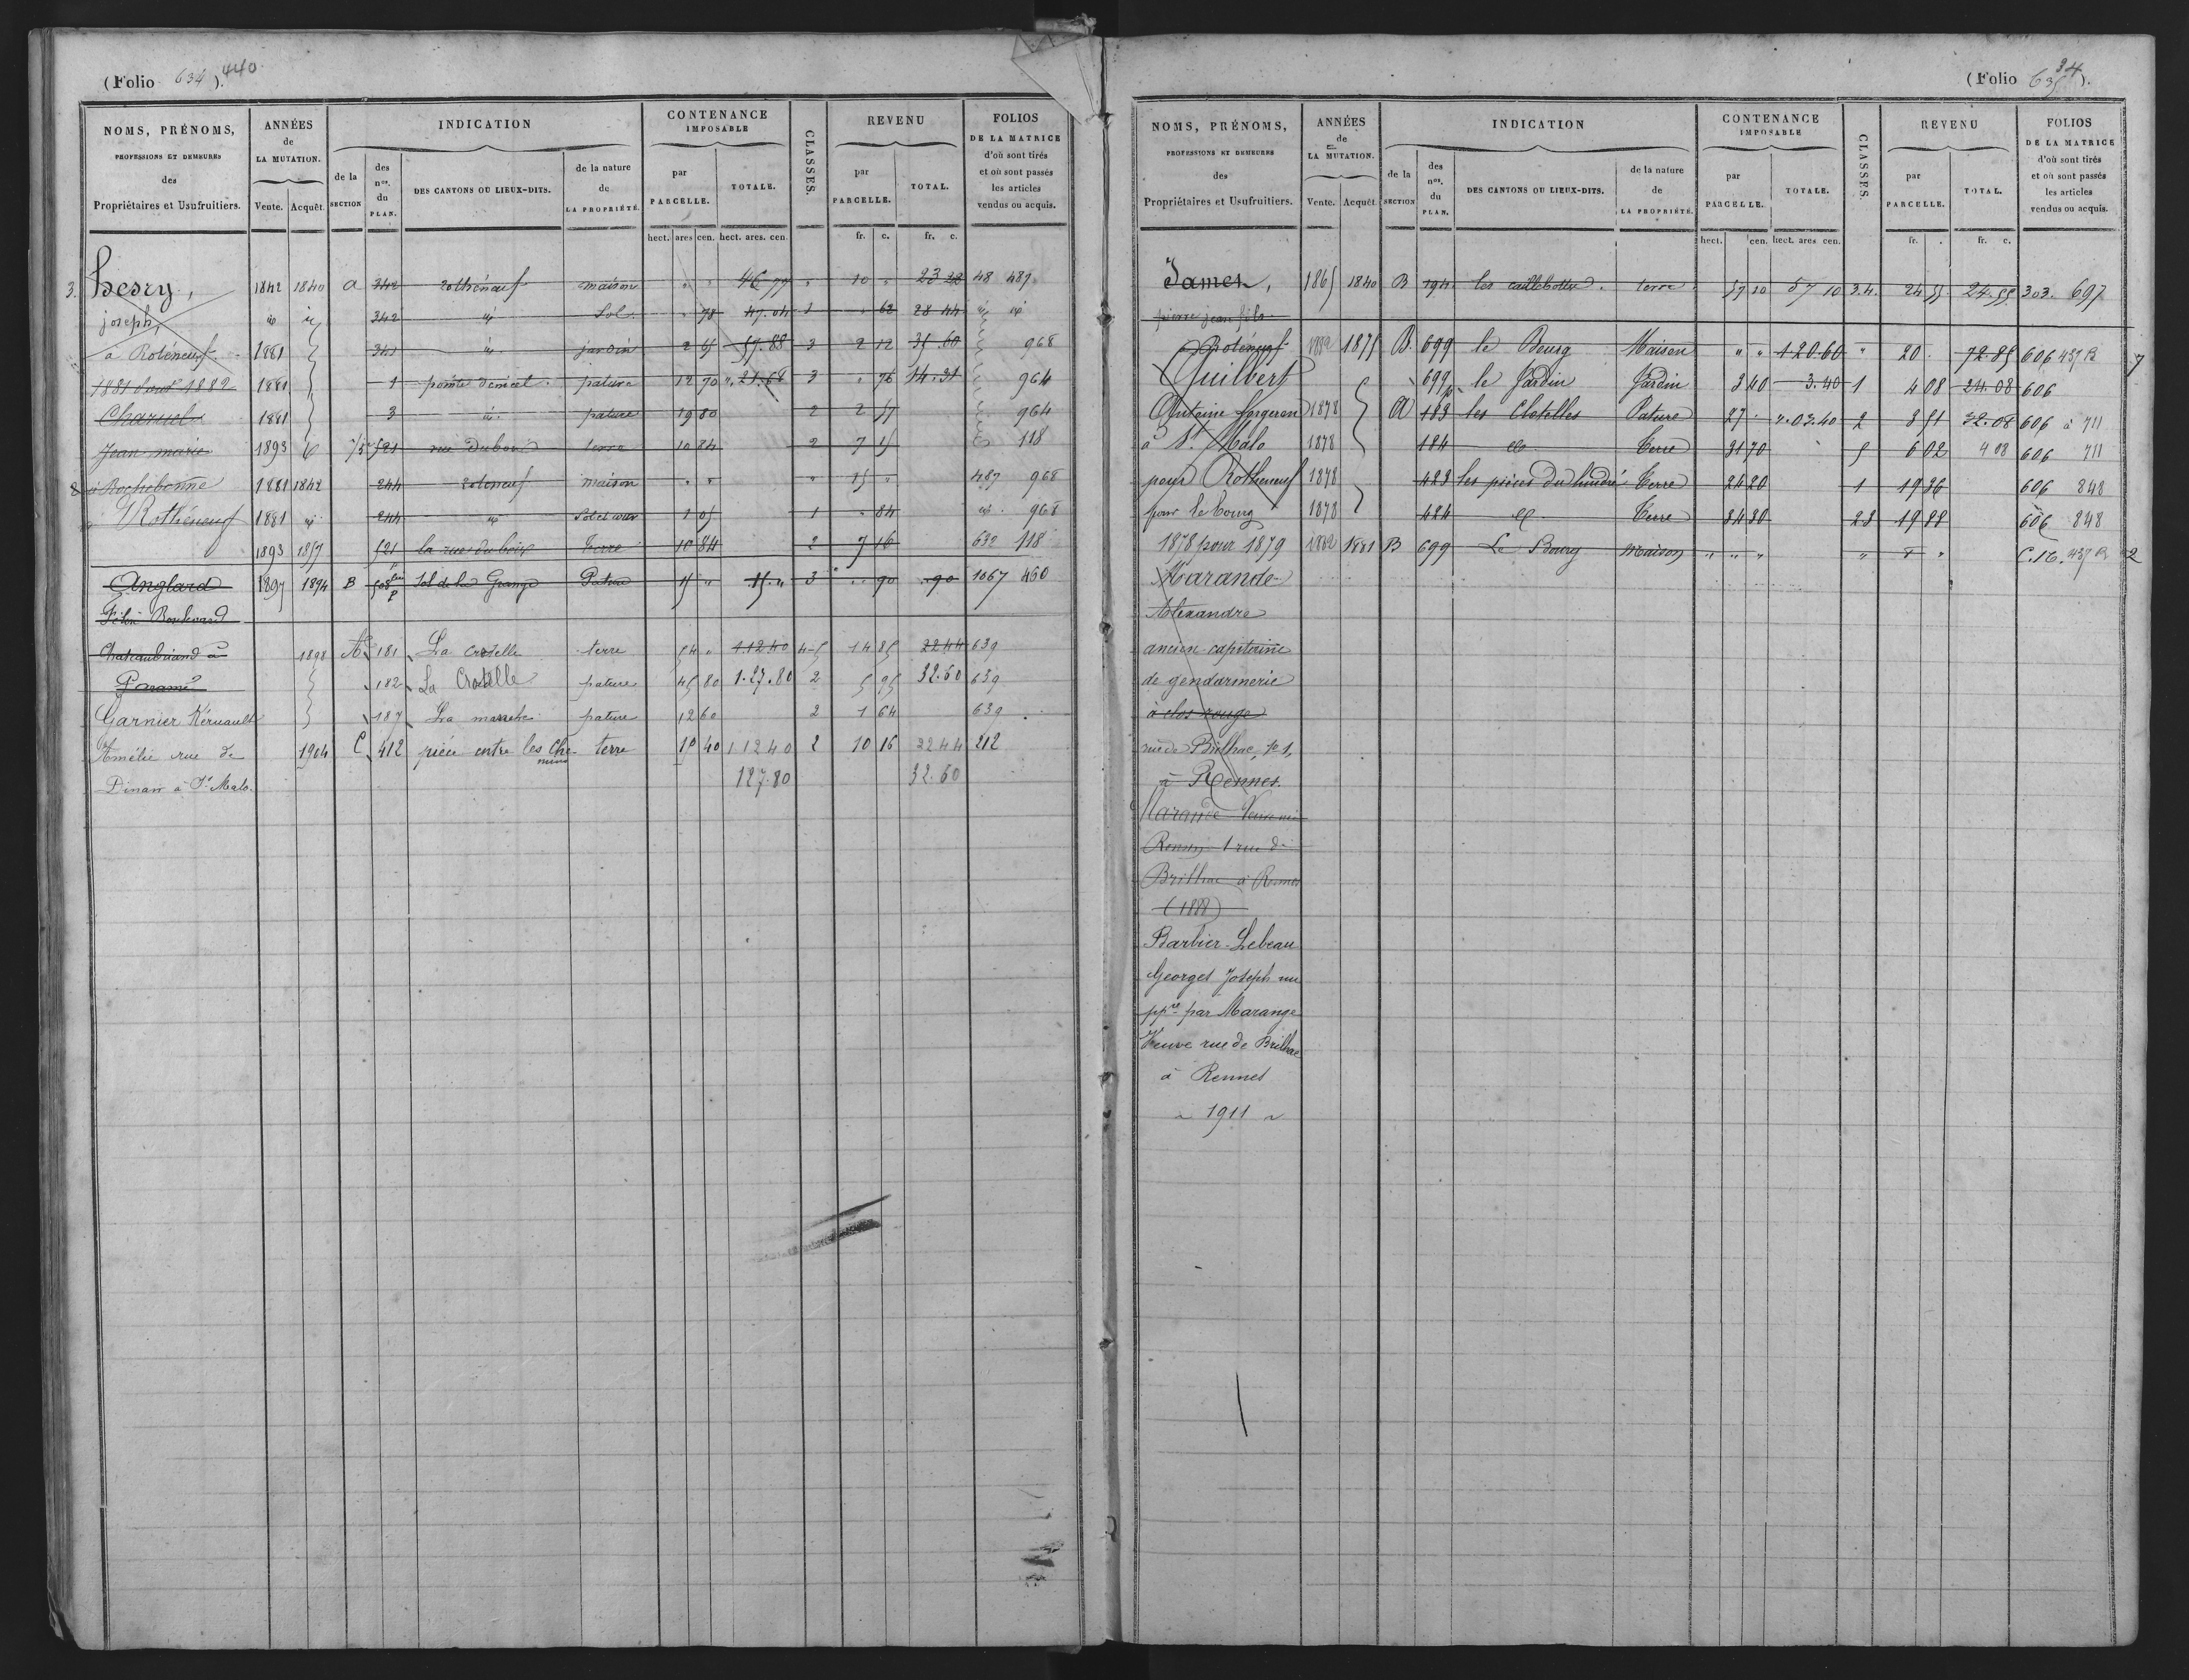 (Folio 634). 440
NOMS, PRÉNOMS, PROFESSIONS ET DEMEURES des Propriétaires et Usufruitiers. | ANNÉES de LA MUTATION. Vente. Acquêt. | INDICATION de la SECTION | des nos. du PLAN. | DES CANTONS OU LIEUX-DITS. | de la nature de LA PROPRIÉTÉ. | CONTENANCE IMPOSABLE par PARCELLE. TOTALE. | CLASSES. | REVENU par PARCELLE. TOTAL. | FOLIOS DE LA MATRICE d'où sont tirés et où sont passés les articles vendus ou acquis.
hect. ares cen. hect. ares. cen. fr. c. fr. c.
3. hesry, 1842 1840 a 342 rothéneuf maison " " 46 77 " 10 " 23 22 48 487
joseph, id id 342 id Sol " 78 47.04 1 " 62 28 44 id id
à Roténeuf 1881 341 id jardin 2 65 57.88 3 2 12 35.60 968
1881 pour 1882 1881 1 pointe de nicet pature 12 70 21.68 3 " 76 14.31 964
Charuel 1881 3 id pature 19 80 2 2 57 964
Jean marie 1893 521 rue du bois terre 10 84 2 7 15 118
à Rochebonne 1881 1842 244 roteneuf maison " " " 15 " 487 968
Rothéneuf 1881 id 244 id Sol et cour 1 05 1 " 84 id 968
1893 1857 521 la rue du bois terre 10 84 2 7 16 632 118
Anglard 1897 1894 B 508 p Sol de la Grange Pature 15 " 15 " 3 " 90 " 90 1067 460
Félix Boulevard
Chateaubriand à 1898 A 181 La crotelle terre 54 " 1.12 40 4-5 14 85 22 44 639
Paramé 182 La Crotelle pature 45 80 1.27.80 2 5 95 32.60 639
Garnier Kéruault 187 La marche pature 12 60 2 1 64 639
Amélie rue de 1904 C 412 pièce entre les Chemins terre 15 40 1 12 40 2 10 16 22 44 212
Dinan à St Malo. 127.80 32.60
(Folio 635). 34
NOMS, PRÉNOMS, PROFESSIONS ET DEMEURES des Propriétaires et Usufruitiers. | ANNÉES de LA MUTATION. Vente. Acquêt. | INDICATION de la SECTION | des nos. du PLAN. | DES CANTONS OU LIEUX-DITS. | de la nature de LA PROPRIÉTÉ. | CONTENANCE IMPOSABLE par PARCELLE. TOTALE. | CLASSES. | REVENU par PARCELLE. TOTAL. | FOLIOS DE LA MATRICE d'où sont tirés et où sont passés les articles vendus ou acquis.
hect. cen. hect. ares cen. fr. . fr. c.
James, 1865 1840 B 194 les caillebottes terre 57 10 57 10 3.4. 24.55 24.55 303. 697
pierre jean fils
à Roténeuf 1882 1875 B. 699 le Bourg Maison " " 1.20.60 " 20. 72.85 606 437 B 7
Guilbert 699 p le Jardin Jardin 3 40 3.40 1 4 08 24.08 606
Antoine forgeron 1878 A 183 les Clotelles Pature 27 " ".03.40 2 3 51 32.08 606 à 711
à St Malo 1878 184 do Terre 31 70 5 6 02 4 08 606 711
pour Rotheneuf 1878 423 les pièces du Terre 24 20 1 19 36 606 848
pour le bourg 1878 424 do Terre 34 30 2 3 19 88 606 848
1878 pour 1879 1882 1881 B 699 Le Bourg Maison " " " " 8 " C.16. 437 B 2
Marande
Alexandre
ancien capitaine
de gendarmerie
à clos rouge
rue de Brilhac, no 1,
à Rennes.
Marande Veuve née
Remsy 1 rue de
Brilhac à Rennes
(1888)
Barbier-Lebeau
Georges Joseph nu
ppre par Marange
Veuve rue de Brilhac
à Rennes
~ 1911 ~